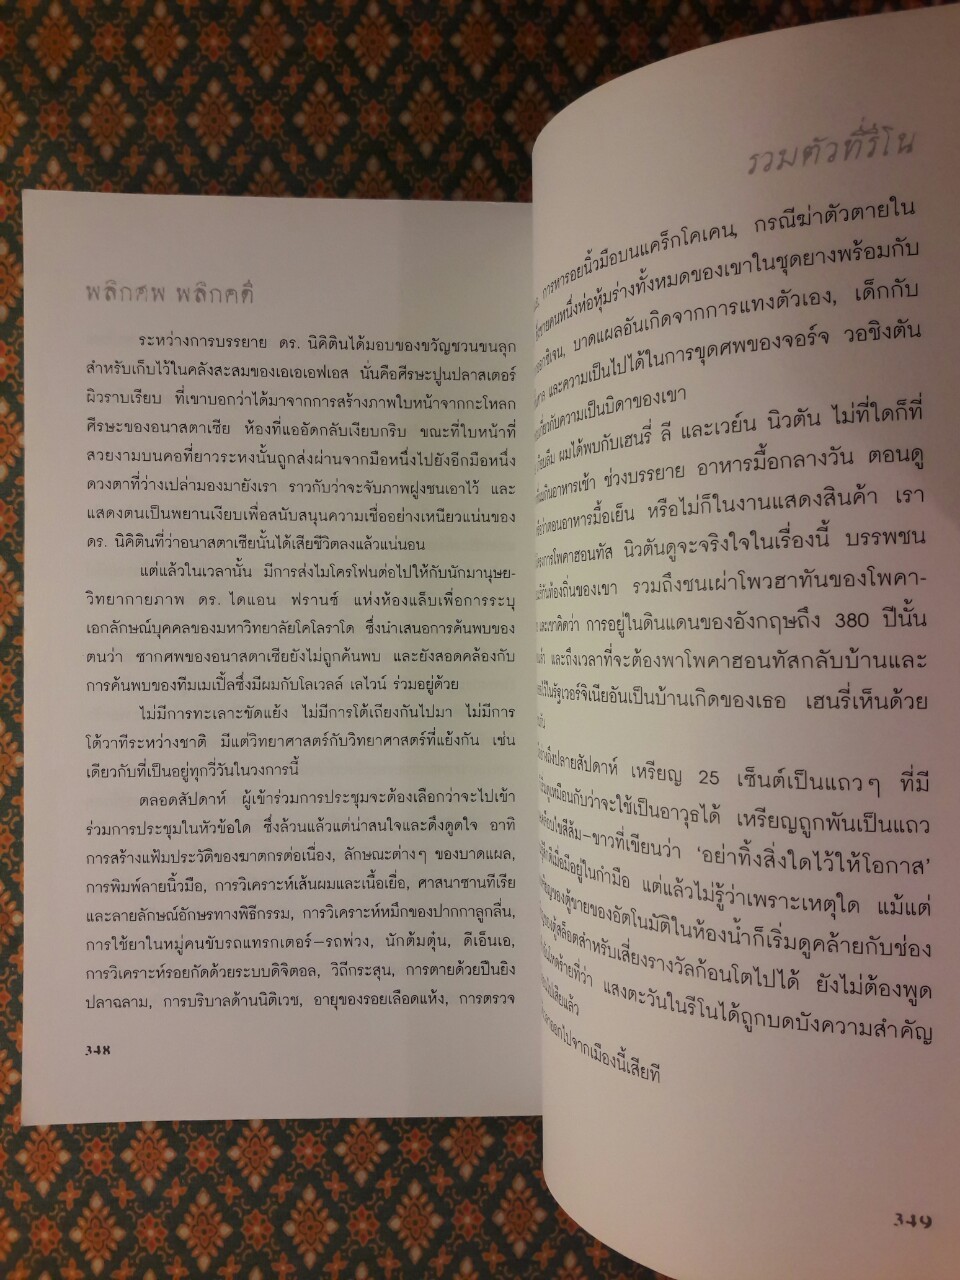 พลิกศพ พลิกคดี
ระหว่างการบรรยาย ดร. นิคิตินได้มอบของขวัญชวนขนลุก
สำหรับเก็บไว้ในคลังสะสมของเอเอเอฟเอส นั่นคือศีรษะปูนปลาสเตอร์
ผิวราบเรียบ ที่เขาบอกว่าได้มาจากการสร้างภาพใบหน้าจากกะโหลก
ศีรษะของอนาสตาเซีย ห้องที่แออัดกลับเงียบกริบ ขณะที่ใบหน้าที่
สวยงามบนคอที่ยาวระหงนั้นถูกส่งผ่านจากมือหนึ่งไปยังอีกมือหนึ่ง
ดวงตาที่ว่างเปล่ามองมายังเรา ราวกับว่าจะจับภาพฝูงชนเอาไว้ และ
แสดงตนเป็นพยานเงียบเพื่อสนับสนุนความเชื่ออย่างเหนียวแน่นของ
ดร. นิคิตินที่ว่าอนาสตาเซียนั้นได้เสียชีวิตลงแล้วแน่นอน
แต่แล้วในเวลานั้น มีการส่งไมโครโฟนต่อไปให้กับนักมานุษย-
วิทยากายภาพ ดร. ไดแอน ฟรานซ์ แห่งห้องแล็บเพื่อการระบุ
เอกลักษณ์บุคคลของมหาวิทยาลัยโคโลราโด ซึ่งนำเสนอการค้นพบของ
ตนว่า ซากศพของอนาสตาเซียยังไม่ถูกค้นพบ และยังสอดคล้องกับ
การค้นพบของทีมเมเปิ้ลซึ่งมีผมกับโลเวลล์ เลไวน์ ร่วมอยู่ด้วย
ไม่มีการทะเลาะขัดแย้ง ไม่มีการโต้เถียงกันไปมา ไม่มีการ
โต้วาทีระหว่างชาติ มีแต่วิทยาศาสตร์กับวิทยาศาสตร์ที่แย้งกัน เช่น
เดียวกับที่เป็นอยู่ทุกวี่วันในวงการนี้
ตลอดสัปดาห์ ผู้เข้าร่วมการประชุมจะต้องเลือกว่าจะไปเข้า
ร่วมการประชุมในหัวข้อใด ซึ่งล้วนแล้วแต่น่าสนใจและดึงดูดใจ อาทิ
การสร้างแฟ้มประวัติของฆาตกรต่อเนื่อง, ลักษณะต่างๆ ของบาดแผล,
การพิมพ์ลายนิ้วมือ, การวิเคราะห์เส้นผมและเนื้อเยื่อ, ศาสนาซานทีเรีย
และลายลักษณ์อักษรทางพิธีกรรม, การวิเคราะห์หมึกของปากกาลูกลื่น,
การใช้ยาในหมู่คนขับรถแทรกเตอร์–รถพ่วง, นักต้มตุ๋น, ดีเอ็นเอ,
การวิเคราะห์รอยกัดด้วยระบบดิจิตอล, วิถีกระสุน, การตายด้วยปืนยิง
ปลาฉลาม, การบริบาลด้านนิติเวช, อายุของรอยเลือดแห้ง, การตรวจ
348
รวมตัวที่รีโน
การหารอยนิ้วมือบนแคร็กโคเคน, กรณีฆ่าตัวตายใน
ชายคนหนึ่งห่อหุ้มร่างทั้งหมดของเขาในชุดยางพร้อมกับ
บาดแผลอันเกิดจากการแทงตัวเอง, เด็กกับ
และความเป็นไปได้ในการขุดศพของจอร์จ วอชิงตัน
เกี่ยวกับความเป็นบิดาของเขา
ผมได้พบกับเฮนรี่ ลี และเวย์น นิวตัน ไม่ที่ใดก็ที่
อาหารเช้า ช่วงบรรยาย อาหารมื้อกลางวัน ตอนดู
ตอนอาหารมื้อเย็น หรือไม่ก็ในงานแสดงสินค้า เรา
โครงการโพคาฮอนทัส นิวตันดูจะจริงใจในเรื่องนี้ บรรพชน
ท้องถิ่นของเขา รวมถึงชนเผ่าโพวฮาทันของโพคา-
และเขาคิดว่า การอยู่ในดินแดนของอังกฤษถึง 380 ปีนั้น
และถึงเวลาที่จะต้องพาโพคาฮอนทัสกลับบ้านและ
ในรัฐเวอร์จิเนียอันเป็นบ้านเกิดของเธอ เฮนรี่เห็นด้วย
ปลายสัปดาห์ เหรียญ 25 เซ็นต์เป็นแถวๆ ที่มี
ดูเหมือนกับว่าจะใช้เป็นอาวุธได้ เหรียญถูกพันเป็นแถว
สีส้ม–ขาวที่เขียนว่า ‘อย่าทิ้งสิ่งใดไว้ให้โอกาส’
เมื่อมีอยู่ในกำมือ แต่แล้วไม่รู้ว่าเพราะเหตุใด แม้แต่
ของตู้ขายของอัตโนมัติในห้องน้ำก็เริ่มดูคล้ายกับช่อง
ของตู้สล็อตสำหรับเสี่ยงรางวัลก้อนโตไปได้ ยังไม่ต้องพูด
ที่ว่า แสงตะวันในรีโนได้ถูกบดบังความสำคัญ
ไปเสียแล้ว
ออกไปจากเมืองนี้เสียที
349